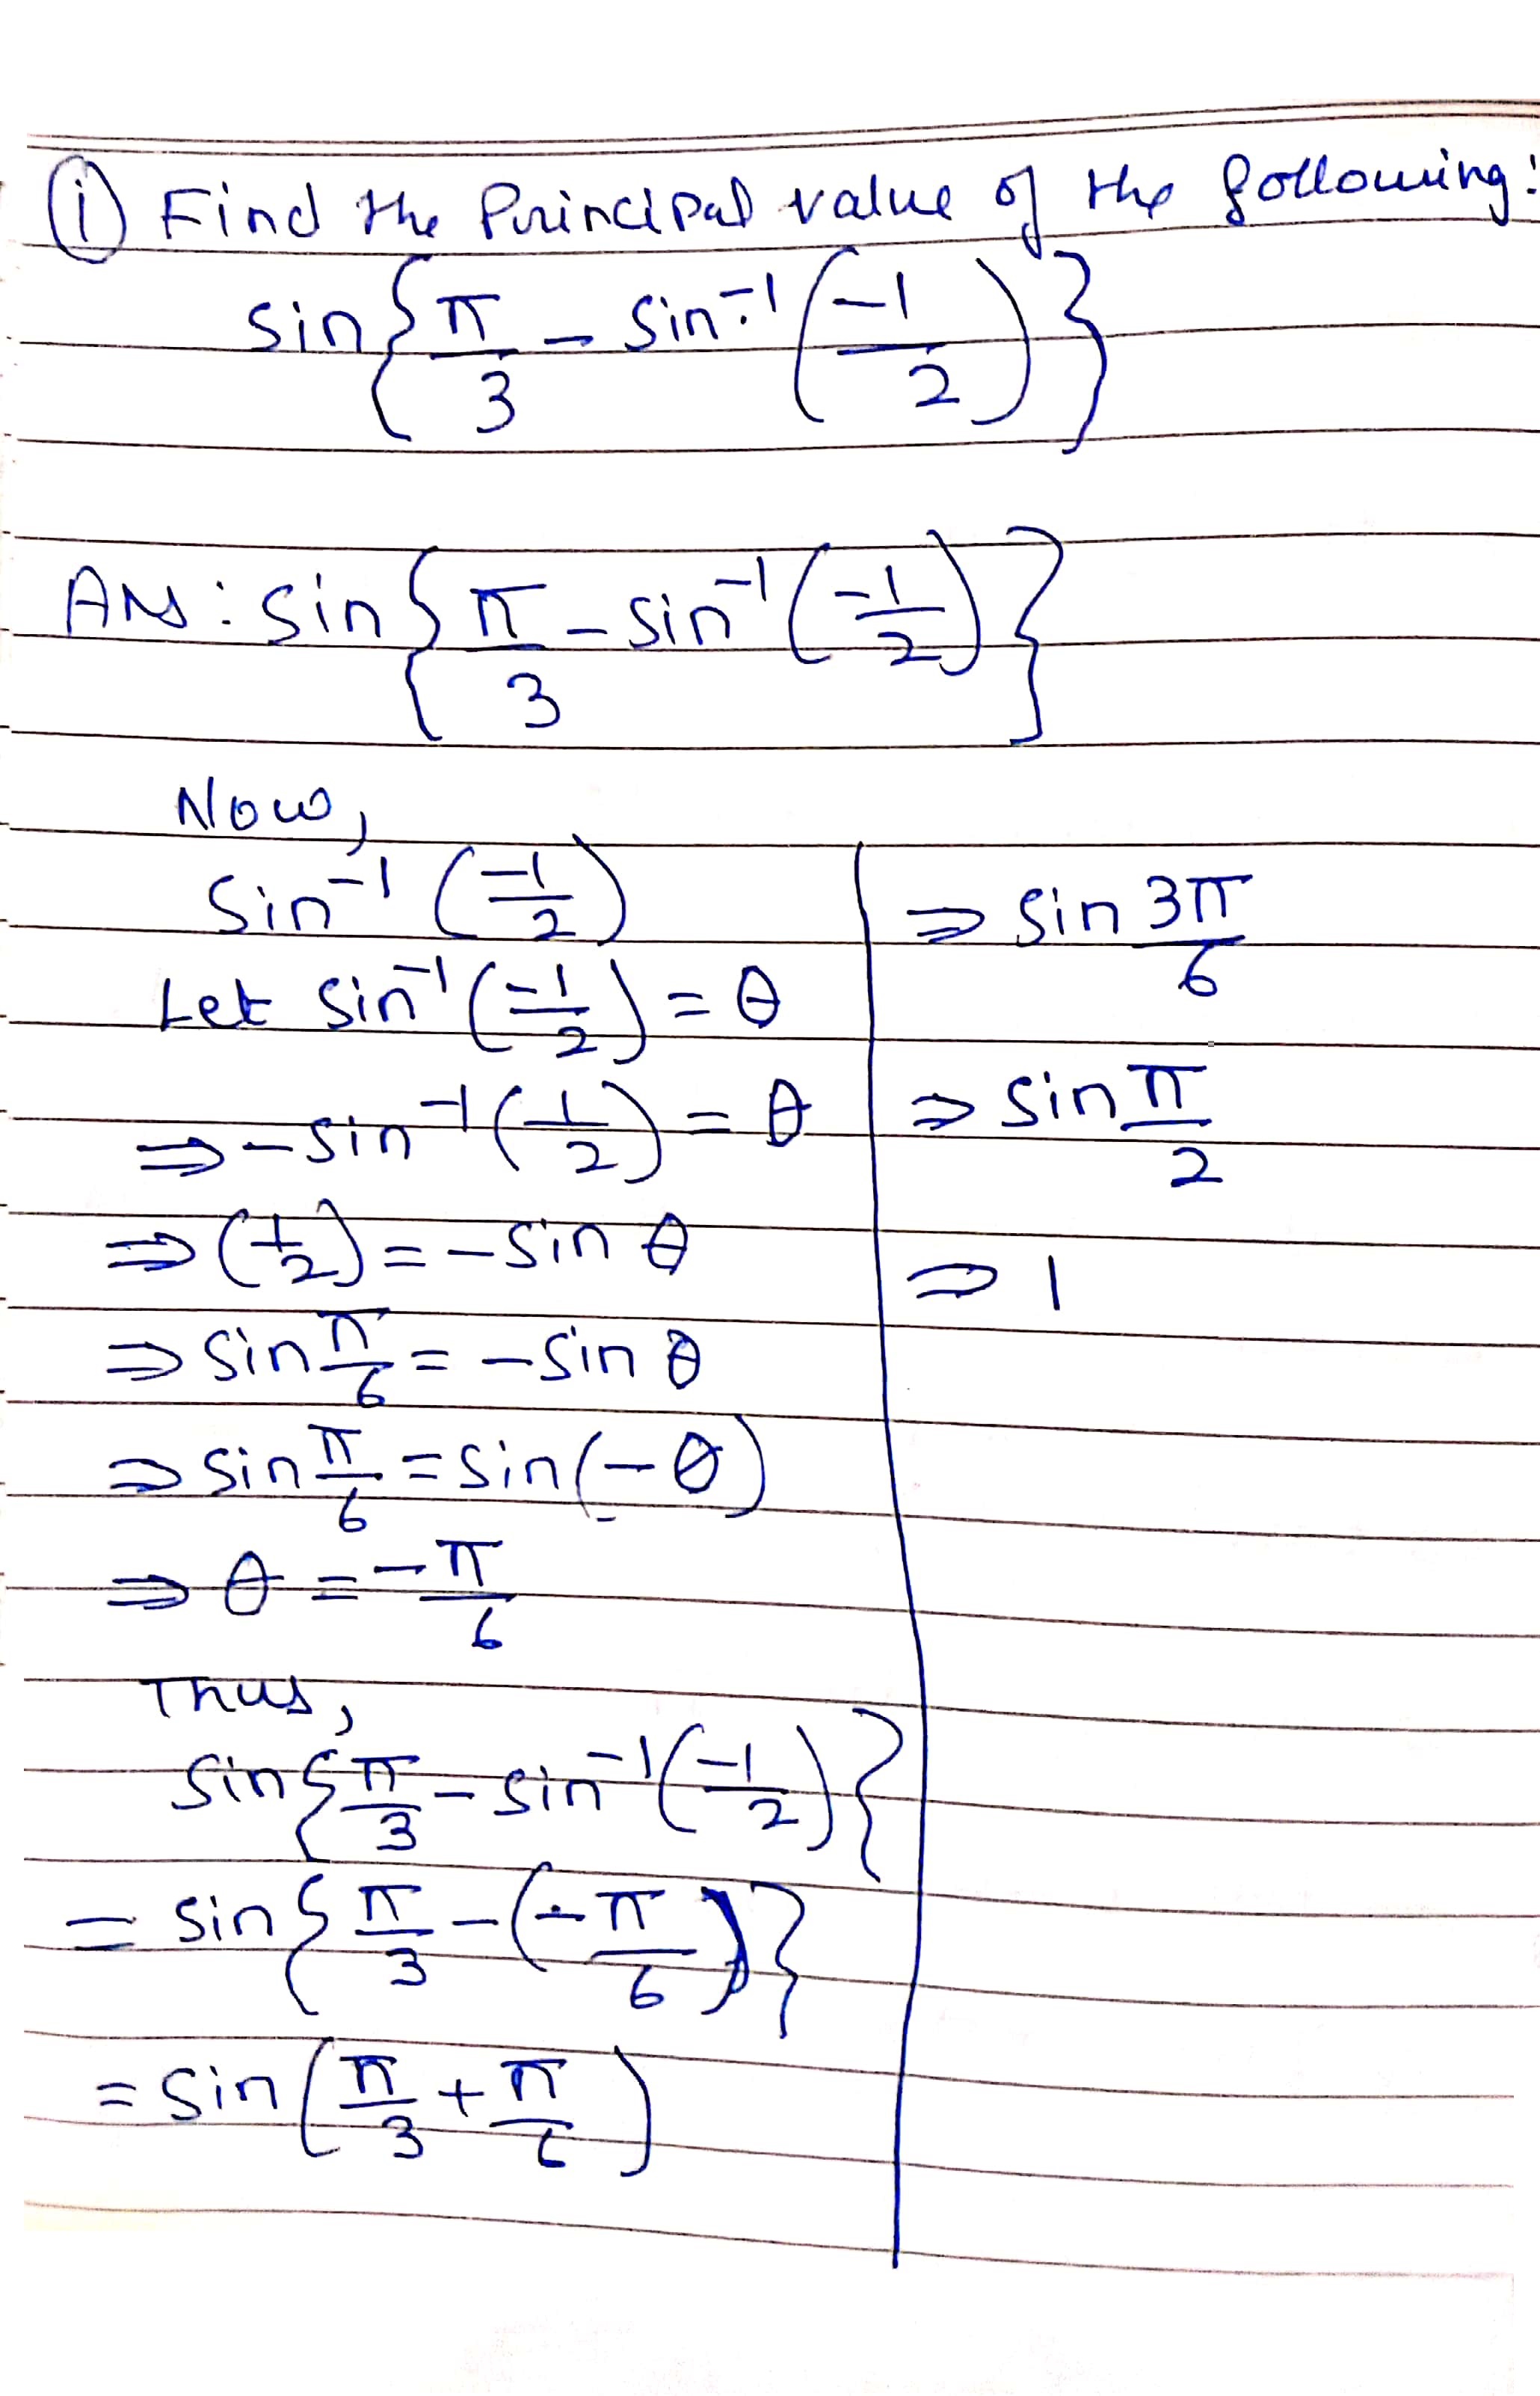 (i) Find the Principal value of the following:
sin{π/3 - sin⁻¹(-1/2)}
Ans: sin{π/3 - sin⁻¹(-1/2)}
Now,
sin⁻¹(-1/2)
Let sin⁻¹(-1/2) = θ
⇒ -sin⁻¹(1/2) = θ
⇒ (1/2) = -sin θ
⇒ sin π/6 = -sin θ
⇒ sin π/6 = sin(-θ)
⇒ θ = -π/6
Thus,
sin{π/3 - sin⁻¹(-1/2)}
= sin{π/3 - (-π/6)}
= sin(π/3 + π/6)
⇒ sin 3π/6
⇒ sin π/2
⇒ 1